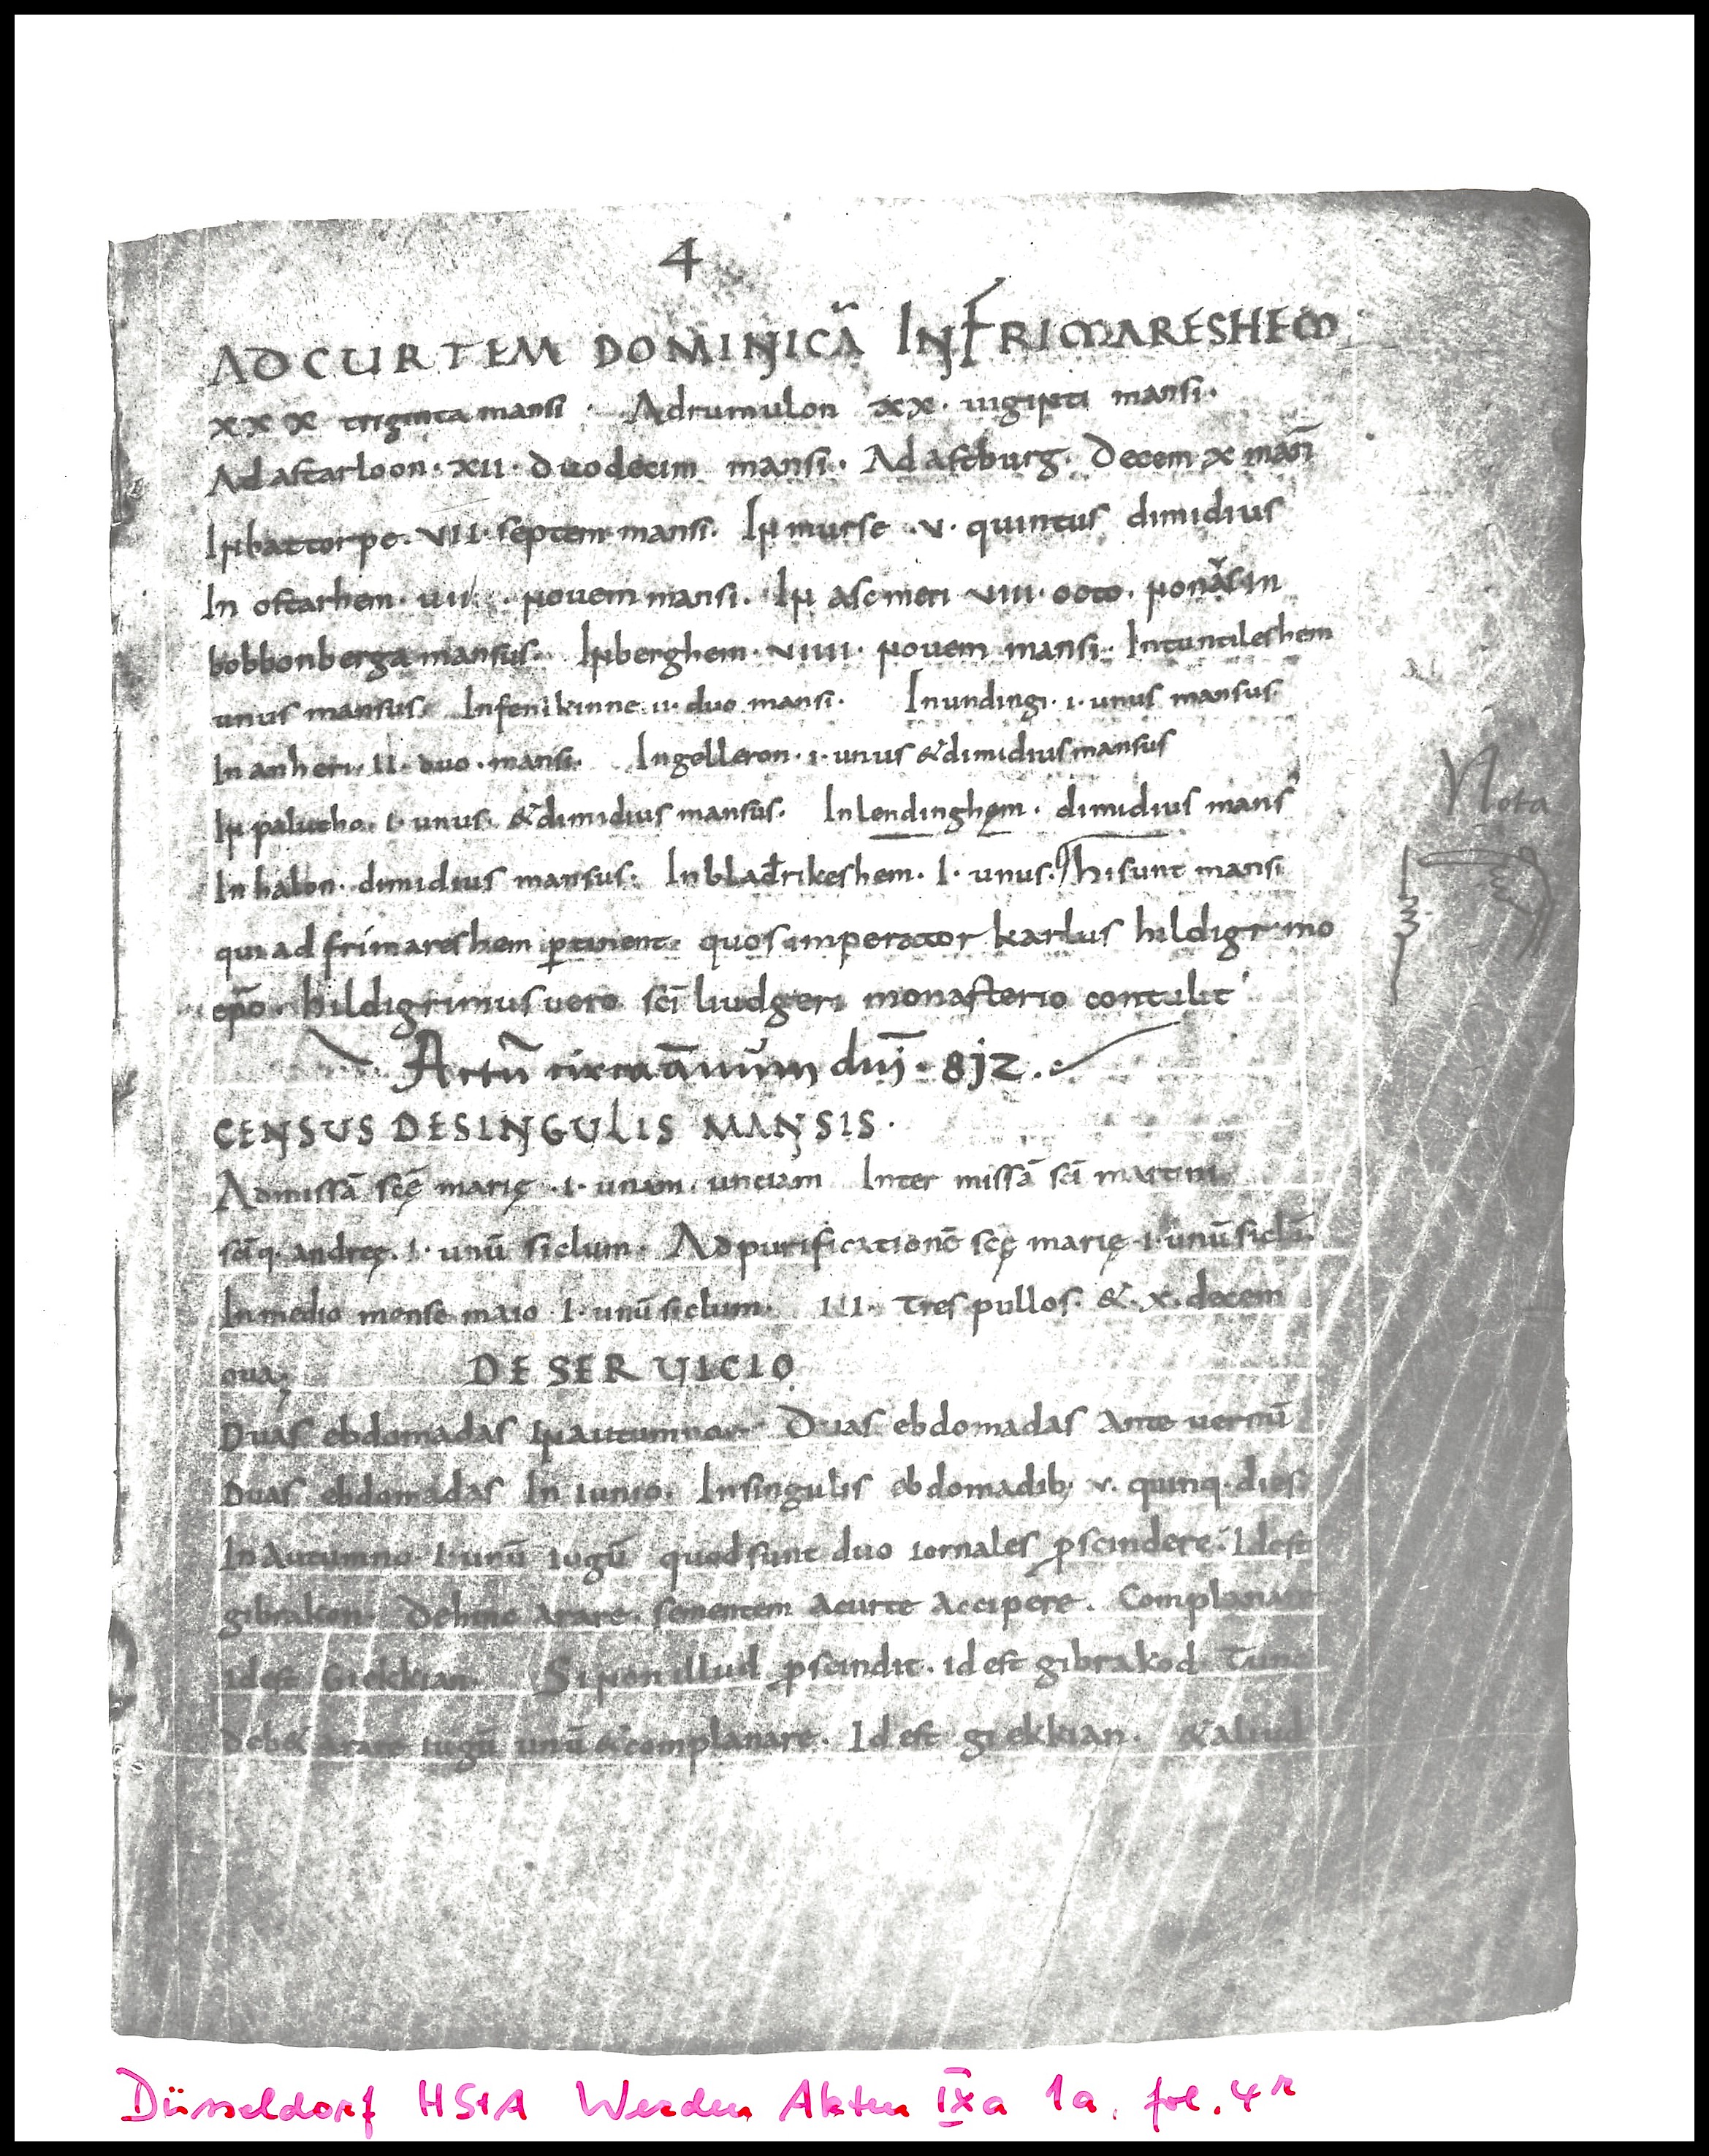 4
ADCURTEM DOMINICĀ INFRIMARESHEM
xxx triginta mansi · Adrumulon xx· uiginti mansi·
Ad astarloon· xII· duodecim mansi· Ad astburg· Decem x man̄
Inbattorpe· VII· septem mansi· In murse ·v· quintus dimidius
In ostarhem· nouem mansi· In ascmeri VIII· octo· in
bobbonberga mansus· Inberghem· VIIII· nouem mansi· Intuntileshem
unus mansus· Infenikinne·II·duo mansi· Inundingi·I·unus mansus
In anheri·II·duo·mansi· Ingelleron·I·unus &dimidius mansus
In palutho·I·unus· &dimidius mansus· Inlendinghem· dimidius mans
In halon· dimidius mansus· Inbladrikeshem·I·unus· hi sunt mansi
qui ad frimareshem ꝑtinent· quos imperator karlus hildigrimo
ep̄o· hildigrimus uero sc̄i liudgeri monasterio contulit
Actū circa ānum dn̄i· 812·
Nota
CENSUS DESINGULIS MANSIS·
Admissā sc̄ę marię ·I· unam unciam Inter missā sc̄i martini
sc̄iq· andreę·I·unū siclum· Ad purificationē sc̄ę marię·I·unū siclū·
In medio mense maio I·unū siclum· III· tres pullos· &·x·decem
oua; DE SERUICIO
Duas ebdomadas In autumno· Duas ebdomadas Ante uernū
Duas ebdomadas In iunio· Insingulis ebdomadib; v· quinq· dies·
In Autumno·I·unū iugū quod sunt duo iornales ꝓscindere· Idest
gibrakon· Dehinc Arare· sementem Acurte Accipere· Complanare
idest Giekkian· Si non illud ꝓscindit· id est gibrakod Tunc
deb& arare iugū unū &complanare· Id est giekkian· &aliud
Düsseldorf HStA Werden Akten IXa 1a, fol. 4r